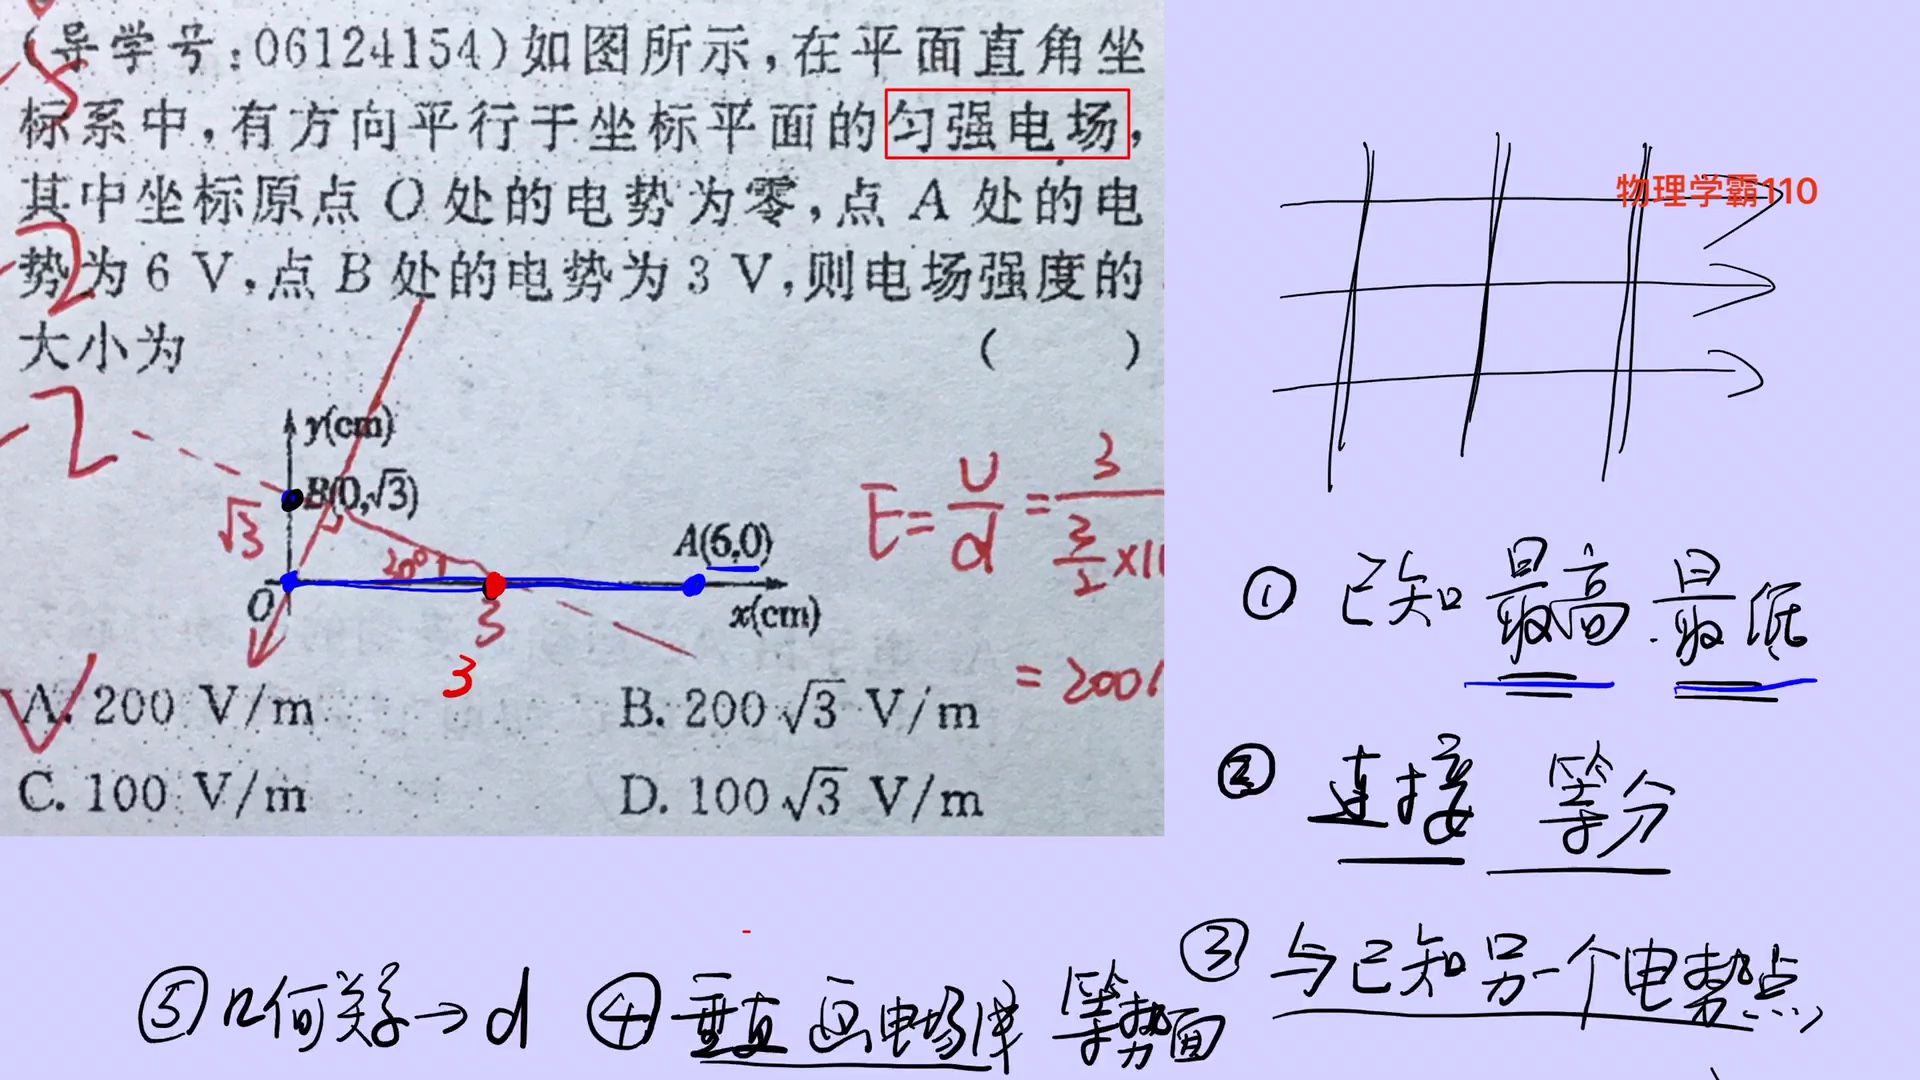 (导学号:06124154)如图所示,在平面直角坐
标系中,有方向平行于坐标平面的匀强电场,
其中坐标原点 O 处的电势为零,点 A 处的电
势为 6 V,点 B 处的电势为 3 V,则电场强度的
大小为 ( )
y(cm)
B(0,√3)
√3
30°
A(6,0)
O
3
x(cm)
3
E=U/d=3/(3/2×10
=200
A. 200 V/m B. 200√3 V/m
C. 100 V/m D. 100√3 V/m
物理学霸110
① 已知最高.最低
② 连接 等分
③ 与已知另一个电势点
等势面
④ 垂直画电场线
⑤ 几何关系→d